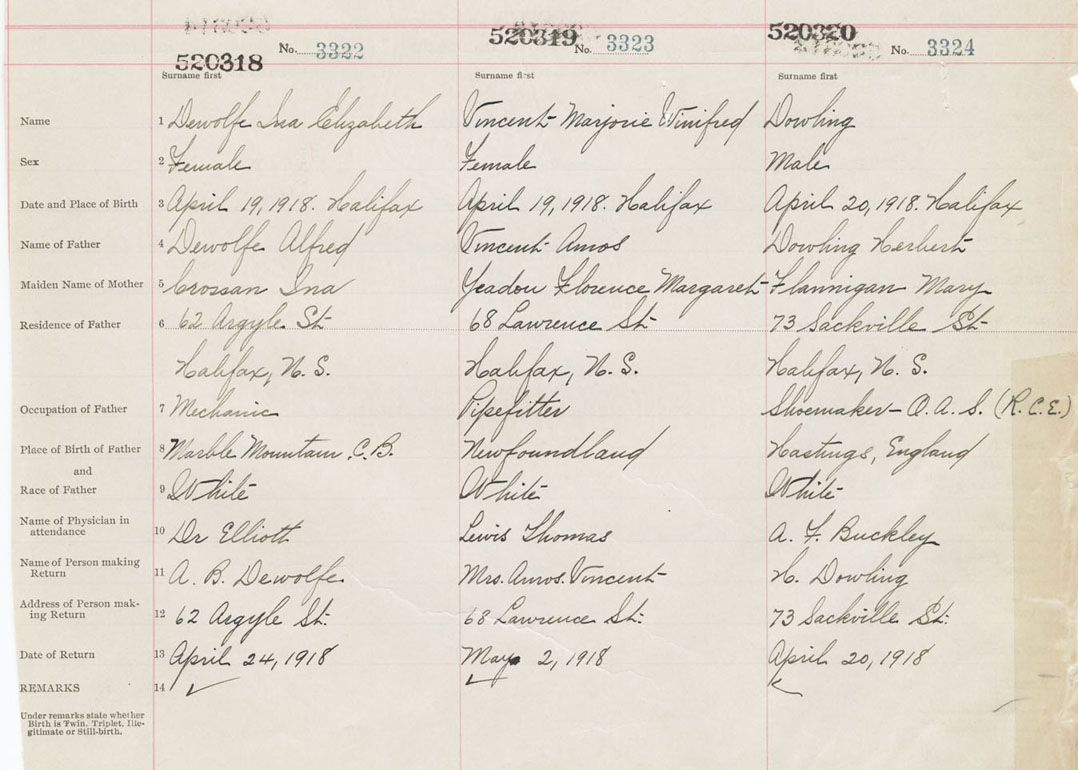 520318 No. 3322 520319 No. 3323 520320 No. 3324
Surname first Surname first Surname first
Name 1 Dewolfe Ina Elizabeth Vincent Marjorie Winifred Dowling
Sex 2 Female Female Male
Date and Place of Birth 3 April 19, 1918. Halifax April 19, 1918. Halifax April 20, 1918. Halifax
Name of Father 4 Dewolfe Alfred Vincent Amos Dowling Herbert
Maiden Name of Mother 5 Crossan Ina Yeadon Florence Margaret Flannigan Mary
Residence of Father 6 62 Argyle St 68 Lawrence St 73 Sackville St
Halifax, N. S. Halifax, N. S. Halifax, N. S.
Occupation of Father 7 Mechanic Pipefitter Shoemaker - O. A. S. (R.C.E.)
Place of Birth of Father 8 Marble Mountain, C.B. Newfoundland Hastings, England
and
Race of Father 9 White White White
Name of Physician in
attendance 10 Dr Elliott Lewis Thomas A. F. Buckley
Name of Person making
Return 11 A. B. Dewolfe Mrs. Amos. Vincent H. Dowling
Address of Person mak-
ing Return 12 62 Argyle St. 68 Lawrence St. 73 Sackville St.
Date of Return 13 April 24, 1918 May 2, 1918 April 20, 1918
REMARKS 14
Under remarks state whether
Birth is Twin. Triplet, Ille-
gitimate or Still-birth.